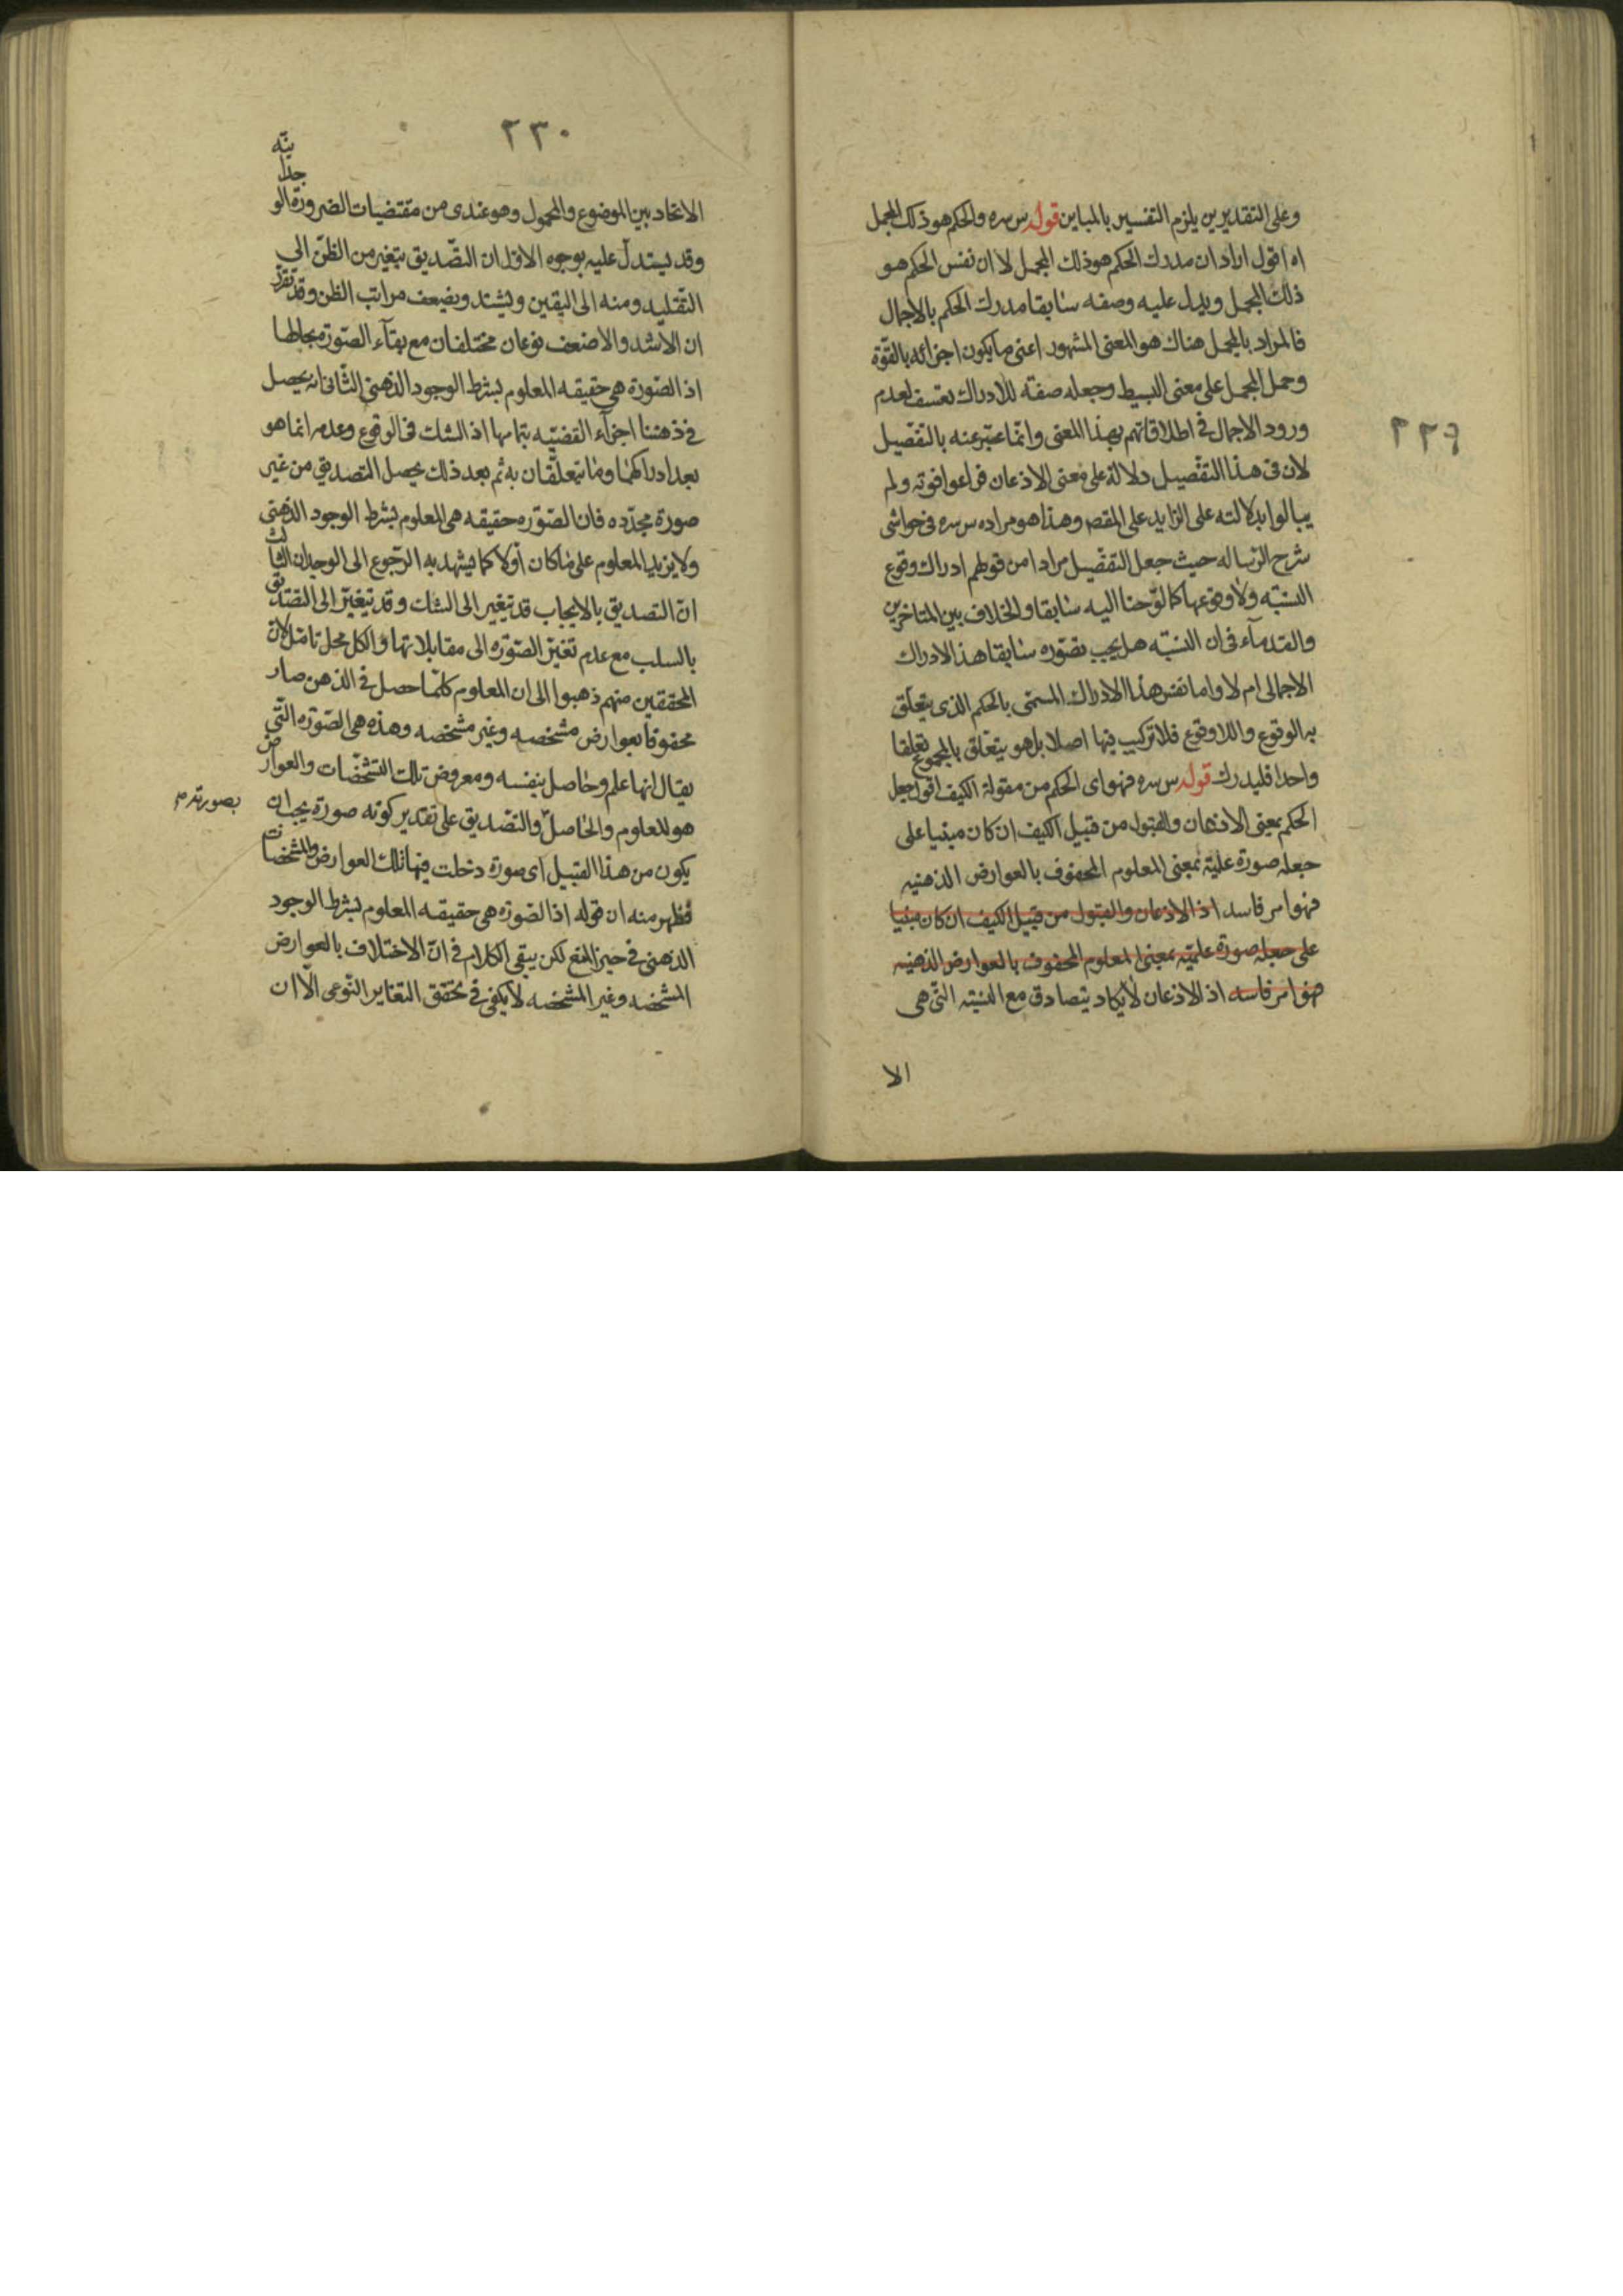 ٢٢٩
وعلى التقديرين يلزم التفسير بالمباين قوله س سره والحكم هو ذلك المجمل
اه اقول اراد ان مدرك الحكم هو ذلك المجمل لا ان نفس الحكم هو
ذلك المجمل ويدل عليه وصفه سابقا مدرك الحكم بالاجمال
فالمراد بالمجمل هناك هو المعنى المشهور اعنى ما يكون اجزائه بالقوة
وحمل المجمل على معنى البسيط وجعله صفة للادراك تعسف لعدم
ورود الاجمال فى اطلاقاتهم بهذا المعنى وانما عبّر عنه بالتفصيل
لان فى هذا التفصيل دلالة على معنى الاذعان فراعوا قوته ولم
يبالوا بدلالته على الزايد على المقصم وهذا هو مراده س سره فى حواشى
شرح الرساله حيث جعل التفصيل مرادا من قولهم ادراك وقوع
النسبته ولا وقوعها كما لوّحنا اليه سابقا والخلاف بين المتاخرين
والقدمآء فى ان النسبته هل يجب تصوّره سابقا هذا الادراك
الاجمالى ام لا واما نفس هذا الادراك المسمى بالحكم الذى يتعلّق
به الوقوع واللاوقوع فلا تركيب فيها اصلا بل هو يتعلّق بالمجموع تعلقا
واحدا فليدرك قوله س سره فهو اى الحكم من مقولة الكيف اقول جعل
الحكم بمعنى الاذعان والقبول من قبيل الكيف ان كان مبنيا على
جعله صورة علميّة بمعنى المعلوم المحفوف بالعوارض الذهنيه
فهو امر فاسد اذ الاذعان والقبول من قبيل الكيف ان كان مبنيا
على جعله صورة علميّة بمعنى المعلوم المحفوف بالعوارض الذهنيه
فهو امر فاسد اذ الاذعان لا يكاد يتصادق مع النسبته التى هى
الا
٢٣٠
الاتحاد بين الموضوع والمحمول وهو عندى من مقتضيات الضرورة الو
جدا
نيّه
وقد يستدلّ عليه بوجوه الاوّل ان التصّديق يتغير من الظنّ الى
التقليد ومنه الى اليقين ويشتد ويضعف مراتب الظن وقد تقرّر
ان الاشد والاضعف نوعان مختلفان مع بقآء الصّورة بحالها
اذ الصّورة هى حقيقه المعلوم بشرط الوجود الذهنى الثّانى انه يحصل
فى ذهننا اجزآء القضيّه بتمامها اذ الشك فى الوقوع وعدمه انما هو
بعد ادراكهما وما يتعلّقان به ثم بعد ذلك يحصل التصديق من غير
صورة مجدّده فان الصّوره حقيقه هى المعلوم بشرط الوجود الذهنى
ولا يزيد المعلوم على ما كان أولا كما يشهد به الرّجوع الى الوجدان الثالث
انّ التصديق بالايجاب قد يتغير الى الشك وقد يتغيّر الى التصديق
بالسلب مع عدم تغيّر الصّوره الى مقابلاتها والكل محل تامّل لانّ
المحققين منهم ذهبوا الى ان المعلوم كلمّا حصل فى الذهن صار
محفوفا بعوارض مشخصه وغير مشخصه وهذه هى الصّوره التّى
يقال انها علم وحاصل بنفسه ومعروض تلك التشخّصات والعوارض
هو المعلوم والحاصل والتصديق على تقدير كونه صورة يجب ان
بصورته م
يكون من هذا القبيل اى صورة دخلت فيها تلك العوارض والمشخصات
فظهر منه ان قوله اذ الصّورة هى حقيقه المعلوم بشرط الوجود
الذهنى فى حيز المنع لكن يبقى الكلام فى انّ الاختلاف بالعوارض
المشخصه وغير المشخصه لا يكفى فى تحقّق التغاير النّوعى الّا ان